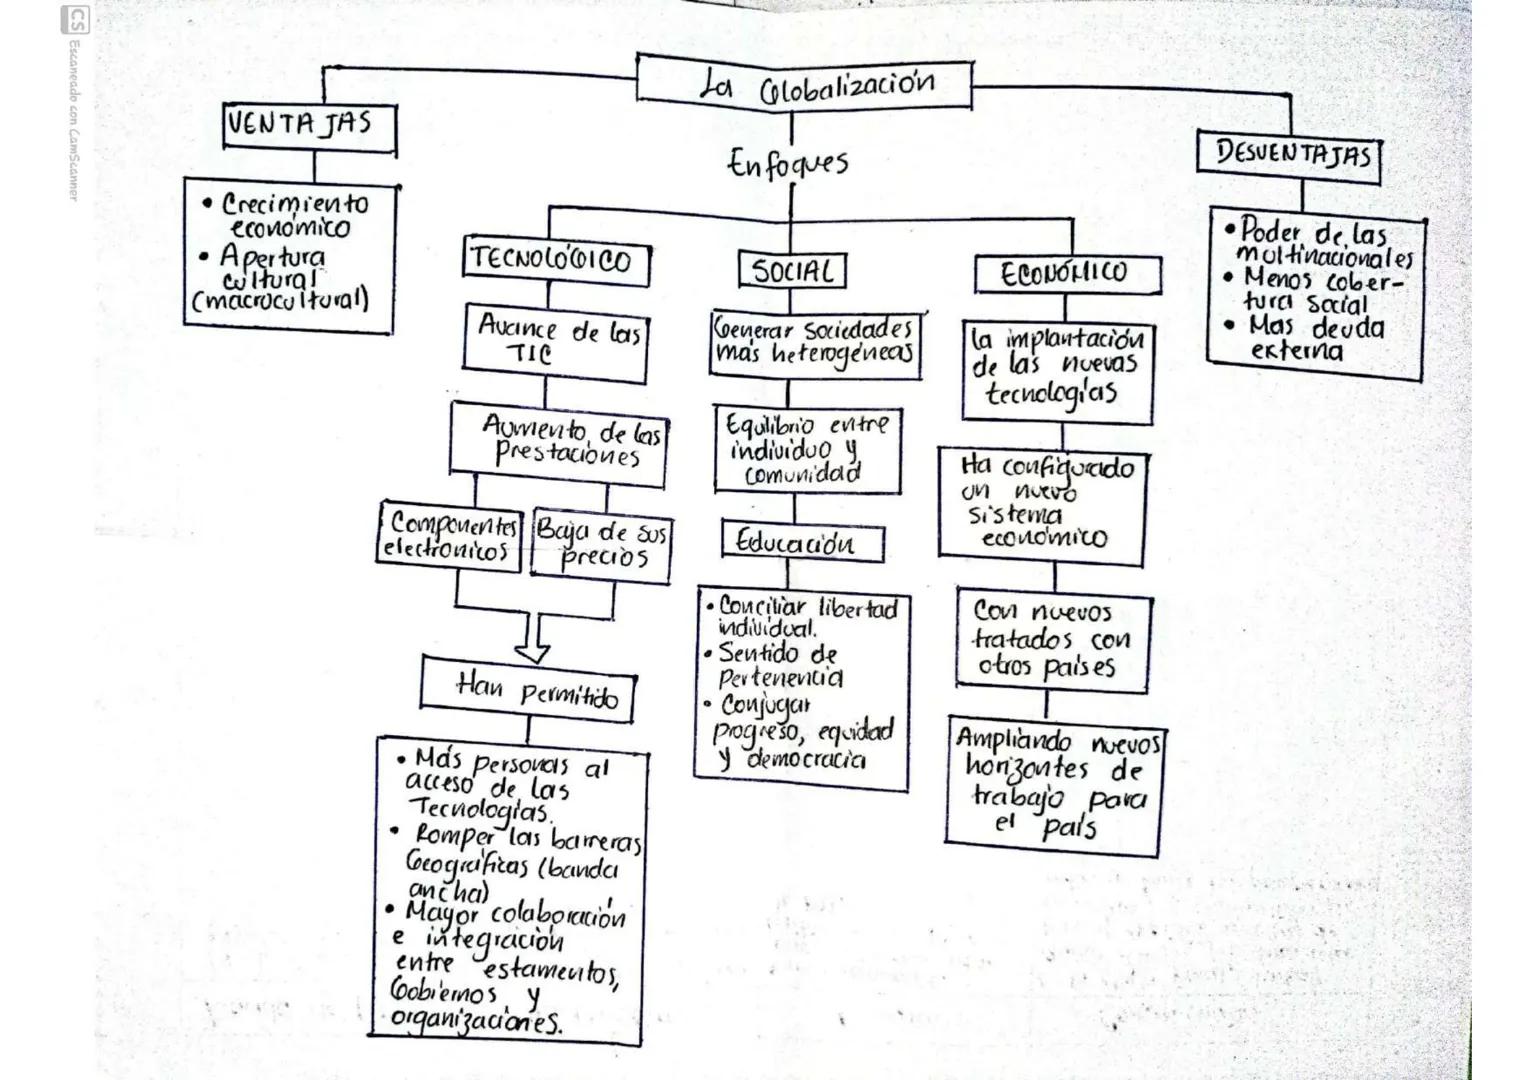 CS Escaneado con CamScanner
La Globalización
VENTAJAS
• Crecimiento
económico
• Apertura
cultural
(macrocultural)
Enfoques
TECNOLÓGICO
Avance de las
TIC
Aumento de las
Prestaciones
Componentes
electronicos
Baja de sus
precios
Han permitido
• Más personas al
acceso de las
Tecnologías.
• Romper las barreras
Geográficas (banda
ancha)
• Mayor colaboración
e integración
entre estamentos,
Gobiernos y
organizaciones.
SOCIAL
Generar Sociedades
más heterogéneas
Equilibrio entre
individuo y
comunidad
Educación
• Conciliar libertad
individual.
• Sentido de
Pertenencia
• Conjugar
progreso, equidad
y democracia
ECONÓMICO
La implantación
de las nuevas
tecnologías
Ha configurado
un nuevo
sistema
económico
Con nuevos
tratados con
otros países
Ampliando nuevos
horizontes de
trabajo para
el país
DESVENTAJAS
• Poder de las
multinacionales
• Menos cober-
tura social
• Mas deuda
externa